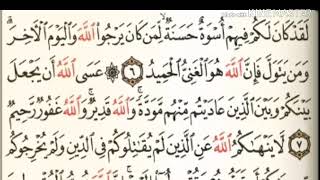 لَقَدْ كَانَ لَكُمْ فِيهِمْ أُسْوَةٌ حَسَنَةٌ لِّمَن كَانَ يَرْجُوا۟ ٱللَّهَ وَٱلْيَوْمَ ٱلْءَاخِرَ ۚ
وَمَن يَتَوَلَّ فَإِنَّ ٱللَّهَ هُوَ ٱلْغَنِىُّ ٱلْحَمِيدُ ٦ عَسَى ٱللَّهُ أَن يَجْعَلَ
بَيْنَكُمْ وَبَيْنَ ٱلَّذِينَ عَادَيْتُم مِّنْهُم مَّوَدَّةً ۚ وَٱللَّهُ قَدِيرٌ ۚ وَٱللَّهُ غَفُورٌ رَّحِيمٌ
٧ لَّا يَنْهَىٰكُمُ ٱللَّهُ عَنِ ٱلَّذِينَ لَمْ يُقَٰتِلُوكُمْ فِى ٱلدِّينِ وَلَمْ يُخْرِجُوكُم